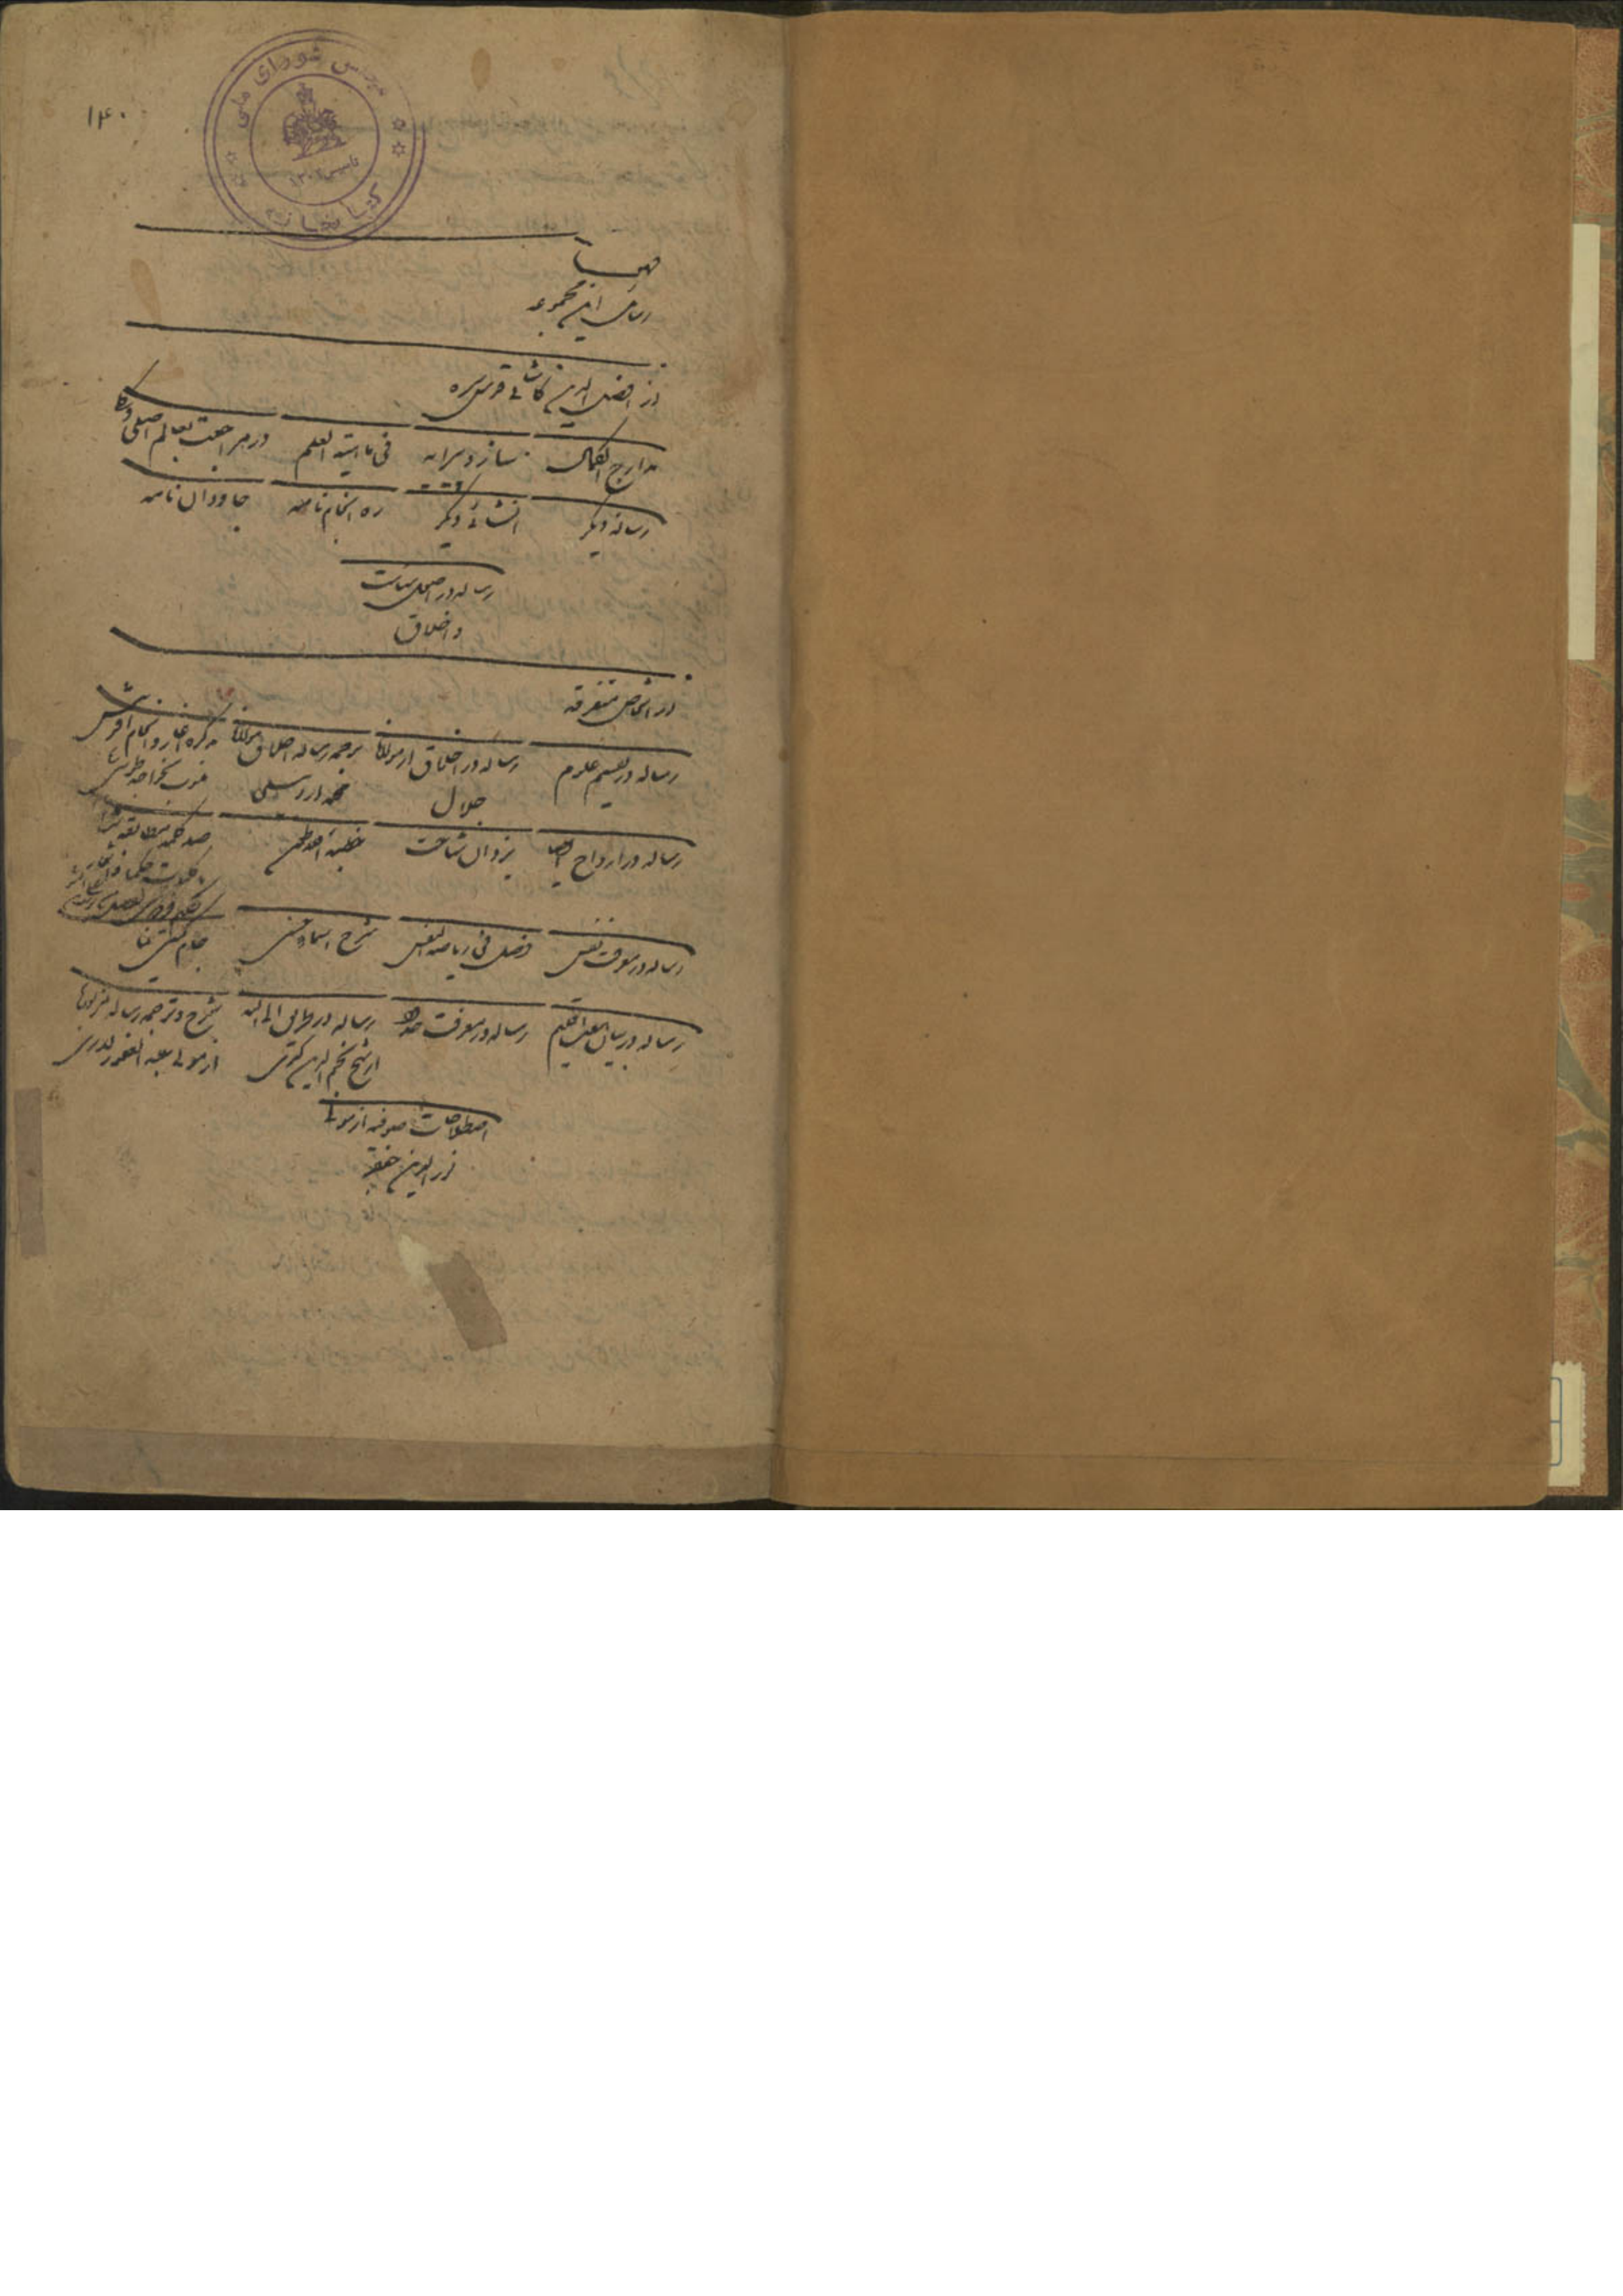 ۱۴۰
مجلس شورای ملی
تاسیس ۱۳۰۲
کتابخانه
فهرست
رسائل این مجموعه
از افضل الدین کاشی قدس سره
مدارج الکمال ساز و پیرایه فی مائیة العلم در مراجعت بعالم اصلی
رساله دیگر انشائی دیگر ره انجام نامه جاودان نامه
رساله در اصول سیاست
و اخلاق
از اشخاص متفرقه
رساله در تقسیم علوم رساله در اخلاق از مولانا ترجمه رساله اخلاق مولانا تذکره آغاز و انجام آفرینش
جلال منسوب بخواجه طوسی
رساله در ارواح یزدان شناخت خطبه صد کلمه
کلمات حکما
رساله در معرفت نفس فصل فی ریاضة النفس شرح اسماء حسنی جام گیتی نما
رساله در بیان هفت اقلیم رساله در معرفت رساله در طرق الی الله شرح و ترجمه رساله
از شیخ نجم الدین کبری از مولی عبد الغفور
اصطلاحات صوفیه از مولی
نور الدین